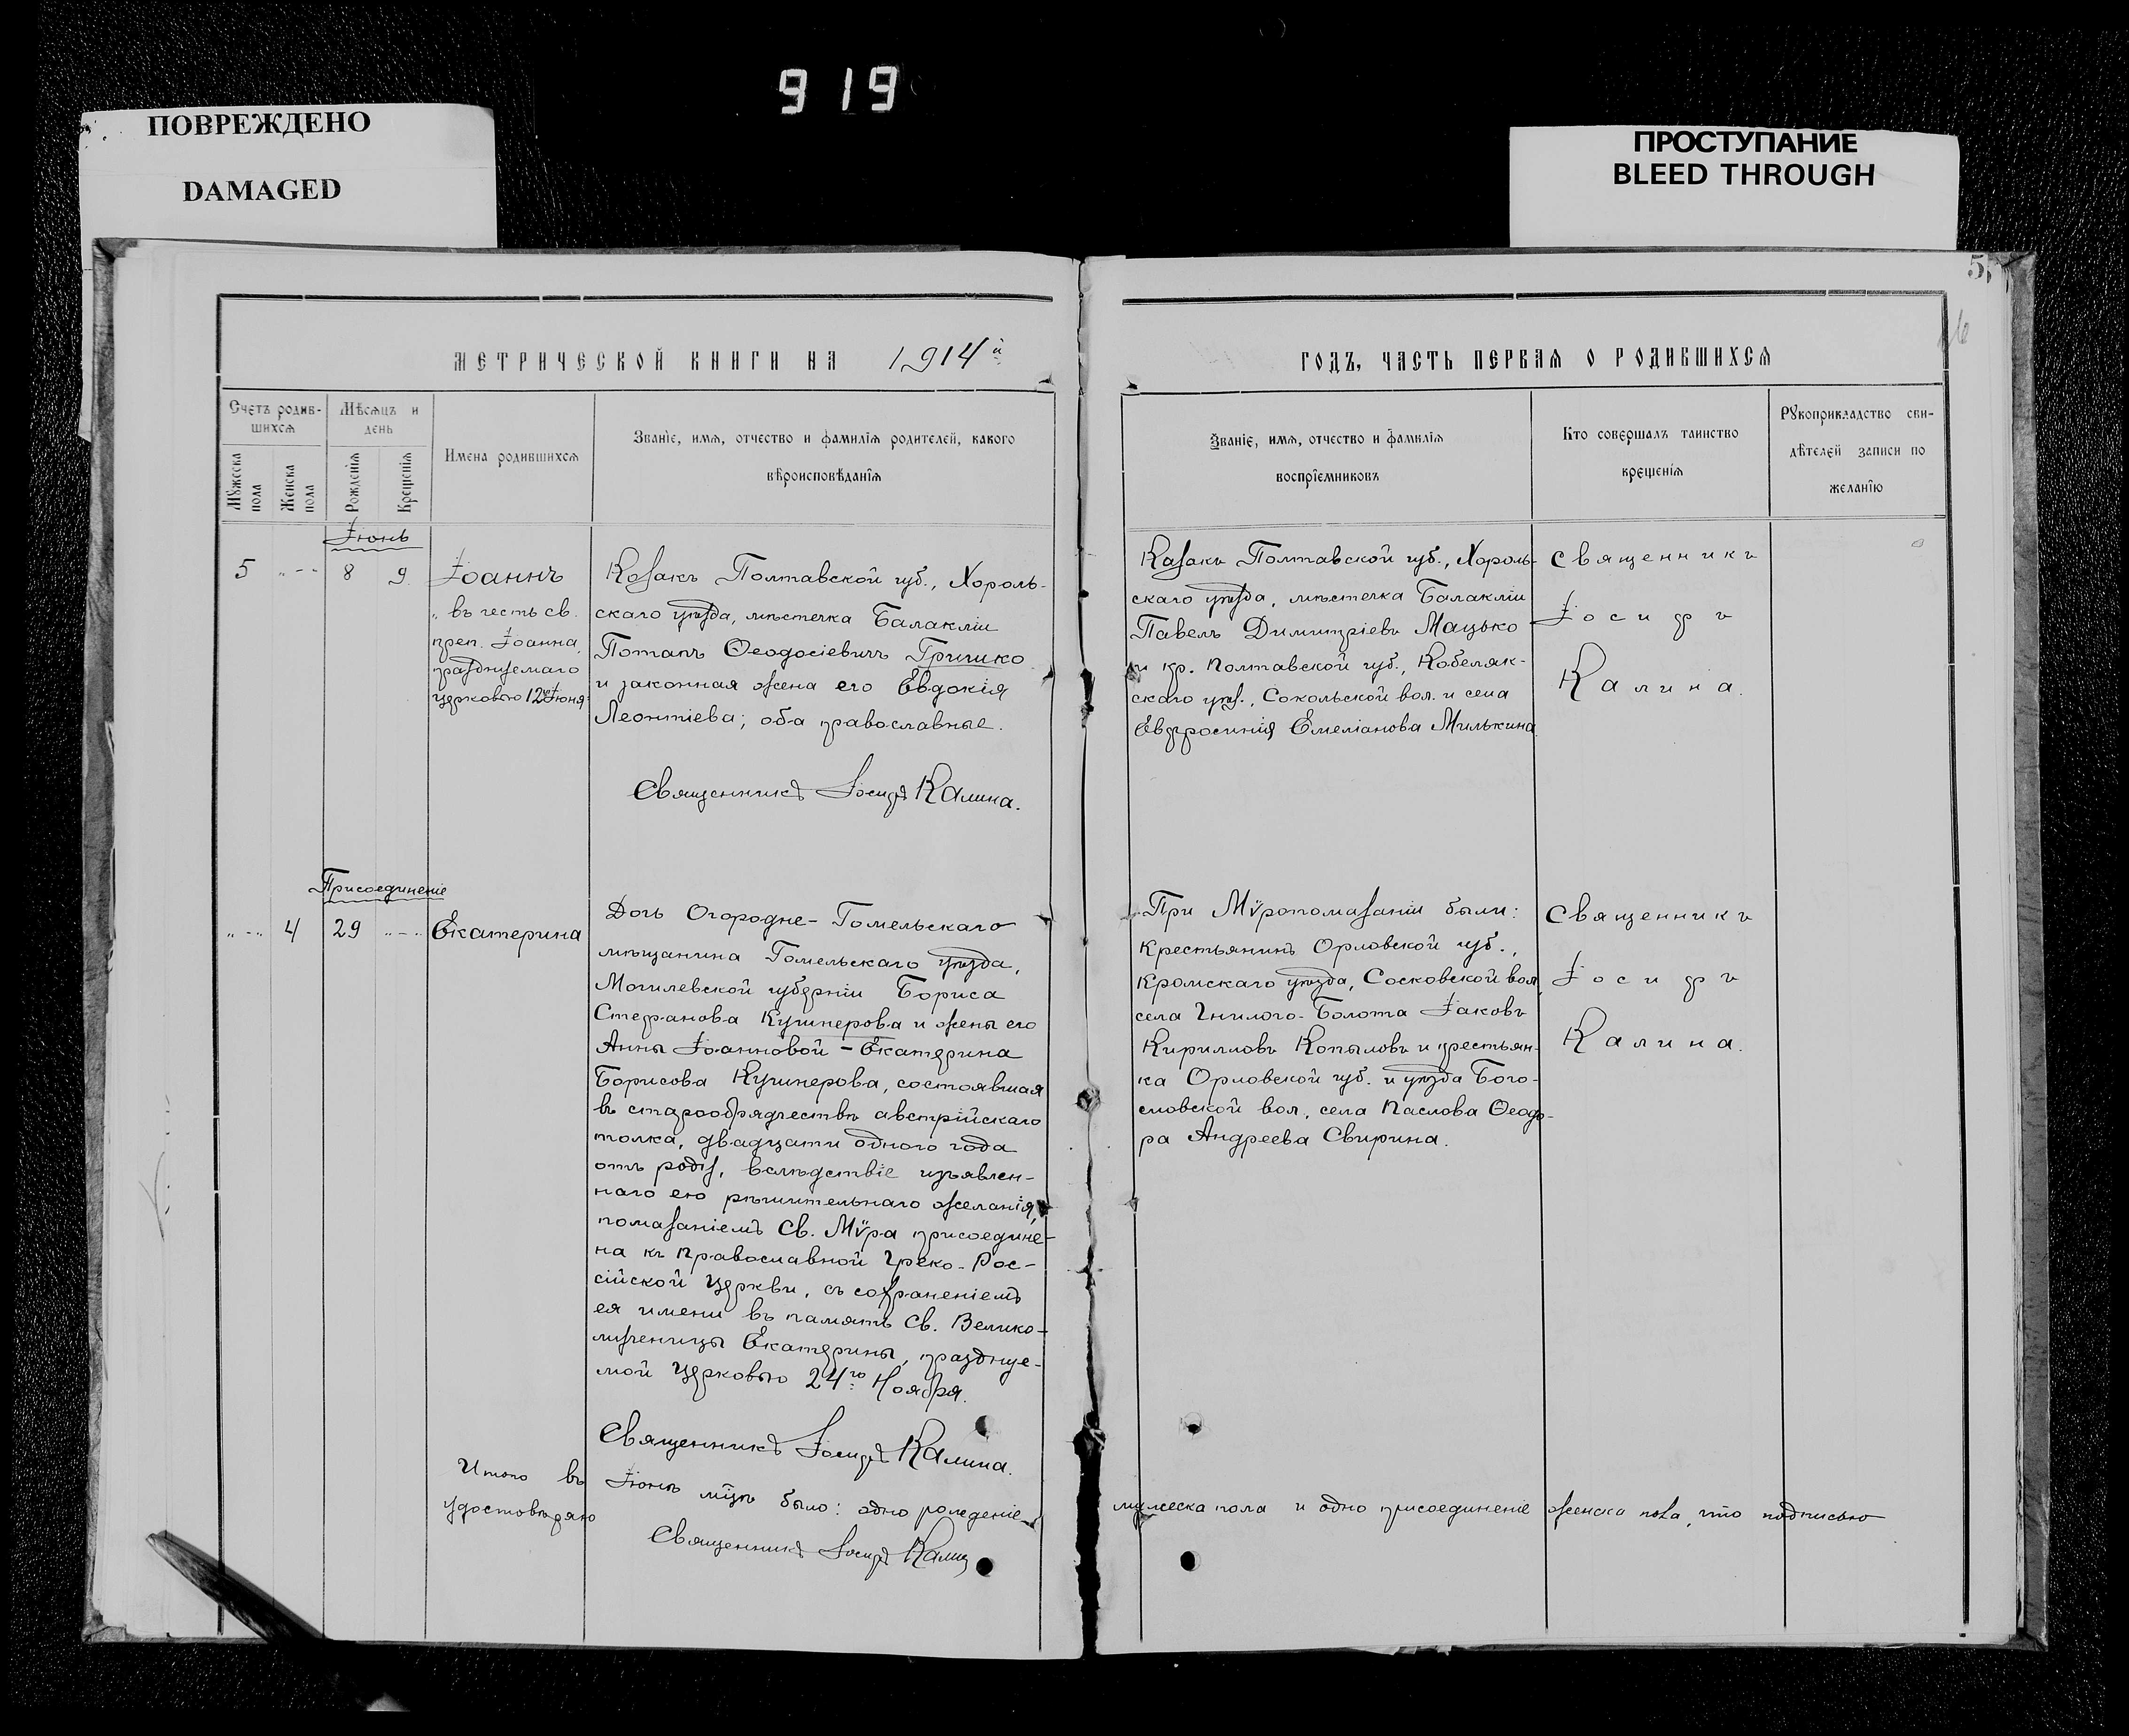 919
ПОВРЕЖДЕНО
DAMAGED
ПРОСТУПАНИЕ
BLEED THROUGH
МЕТРИЧЕСКОЙ КНИГИ НА 1914й
Счетъ родив-
шихся
Мѣсяцъ и
день
Имена родившихся
Званіе, имя, отчество и фамилія родителей, какого
вѣроисповѣданія
Мужеска
пола
Женска
пола
Рожденія
Крещенія
Іюнь
5 „-- 8 9.
Іоаннъ
„ въ честь св.
преп. Іоанна,
празднуемаго
церковью 12го Іюня
Козакъ Полтавской губ., Хороль-
скаго уѣзда, мѣстечка Балакліи
Потапъ Ѳеодосіевичъ Гришко
и законная жена его Евдокія
Леонтіева; оба православные.
Священникъ Іосифъ Калина.
Присоединеніе
„-„ 4 29 „-„ Екатерина
Дочь Огородне-Гомельскаго
мѣщанина Гомельскаго уѣзда,
Могилевской губерніи Бориса
Стефанова Кушнерова и жены его
Анны Іоанновой - Екатерина
Борисова Кушнерова, состоявшая
въ старообрядчествѣ австрійскаго
толка, двадцати одного года
отъ роду, вслѣдствіе изъявлен-
наго ею рѣшительнаго желанія,
помазаніемъ Св. Мѵра присоедине-
на къ Православной Греко-Рос-
сійской Церкви, съ сохраненіемъ
ея имени въ память Св. Велико-
мученицы Екатерины, празднуе-
мой Церковью 24го Ноября.
Священникъ Іосифъ Калина.
Итого въ Іюнѣ мцѣ было: одно рожденіе
удостовѣряю
Священникъ Іосифъ Калина
5
16
ГОДЪ, ЧАСТЬ ПЕРВАЯ О РОДИВШИХСЯ
Званіе, имя, отчество и фамилія
воспріемниковъ
Кто совершалъ таинство
крещенія
Рукоприкладство сви-
дѣтелей записи по
желанію
Козакъ Полтавской губ., Хороль-
скаго уѣзда, мѣстечка Балакліи
Павелъ Димитріевъ Мацько
и кр. Полтавской губ., Кобеляк-
скаго уѣз., Сокольской вол. и села
Евфросинія Емеліанова Милькина
Священникъ
Іосифъ
Калина.
При Мѵропомазаніи были:
Крестьянинъ Орловской губ.,
Кромскаго уѣзда, Сосковской вол.,
села Гнилого-Болота Іаковъ
Кирилловъ Копыловъ и крестьян-
ка Орловской губ. и уѣзда Бого-
словской вол., села Паслова Ѳеодо-
ра Андреева Свирина.
Священникъ
Іосифъ
Калина.
мужеска пола и одно присоединеніе женска пола, что подписью